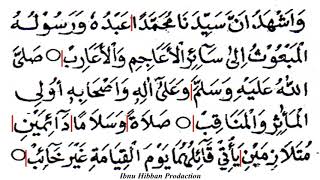 وَاشْهَدُ اَنَّ سَيِّدَنَا مُحَمَّدًا عَبْدُهُ وَرَسُوْلُهُ
الْمَبْعُوْثُ اِلَى سَائِرِ الْاَعَاجِمِ وَالْاَعَارِبِ ○ صَلَّى
اللهُ عَلَيْهِ وَسَلَّمَ وَعَلَى اٰلِهِ وَاَصْحَابِهِ أُولِى
الْمَآثِرِ وَالْمَنَاقِبِ ○ صَلَاةً وَسَلَامًا دَآئِمَيْنِ
مُتَلَازِمَيْنِ يَأْتِى قَائِلُهُمَا يَوْمَ الْقِيَامَةِ غَيْرَ خَائِبٍ ○
Ibnu Hibban Production